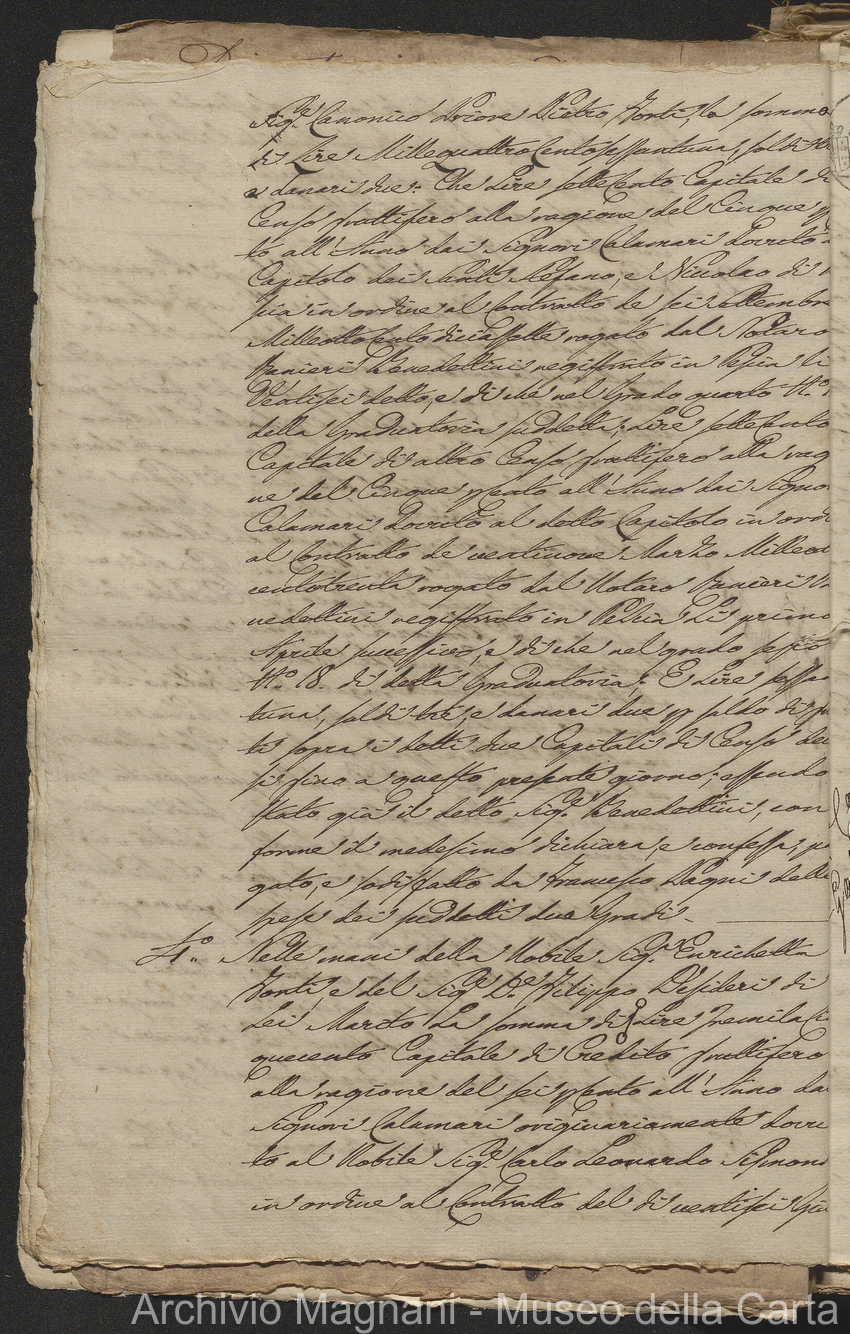 Sig.r Canonico Priore Pietro Forti, la somma
di Lire Millequattrocentosessantuna, soldi tre
e danari due: Che Lire settecento Capitale di
Censo fruttifero alla ragione del Cinque p
to all'Anno dai Signori Calamari dovuto a
Capitolo dei Santi Stefano, e Niccolao di
scia in ordine al Contratto de sei settembre
Milleottocentodiciassette rogato dal Notaro
Ranieri Benedettini registrato in Pescia li
Ventisei detto, e di che nel Grado quarto N.o
della Graduatoria suddetta; Lire settecento
Capitale di altro Censo fruttifero alla rag
ne del Cinque pCento all'Anno dai Signo
Calamari dovuto al detto Capitolo in ordi
al Contratto de ventinove Marzo Milleot
centotrenta rogato dal Notaro Ranieri Be
nedettini registrato in Pescia Li primo
Aprile successivo, e di che nel grado sesto
N.o 8. di detta Graduatoria; E Lire sessan
tuna, soldi tre, e danari due p saldo di fru
ti sopra i detti due Capitali di Censo de
si fino a questo presente giorno; essendo
stato già il detto Sig.r Benedettini, con
forme il medesimo dichiara, e confessa, pa
gato, e sodisfatto da Francesco Pagni delle
spese dei suddetti due Gradi.
4.o Nelle mani della Nobile Sig.ra Enrichetta
Forti, e del Sig.re D.re Filippo Desideri di
Lei Marito La somma di Lire Tremila Ci
quecento Capitale di Credito fruttifero
alla ragione del sei pCento all'Anno da
Signori Calamari originariamente dovu
to al Nobile Sig.r Carlo Leonardo Sismondi
in ordine al Contratto del dì ventisei Giu
Archivio Magnani - Museo della Carta